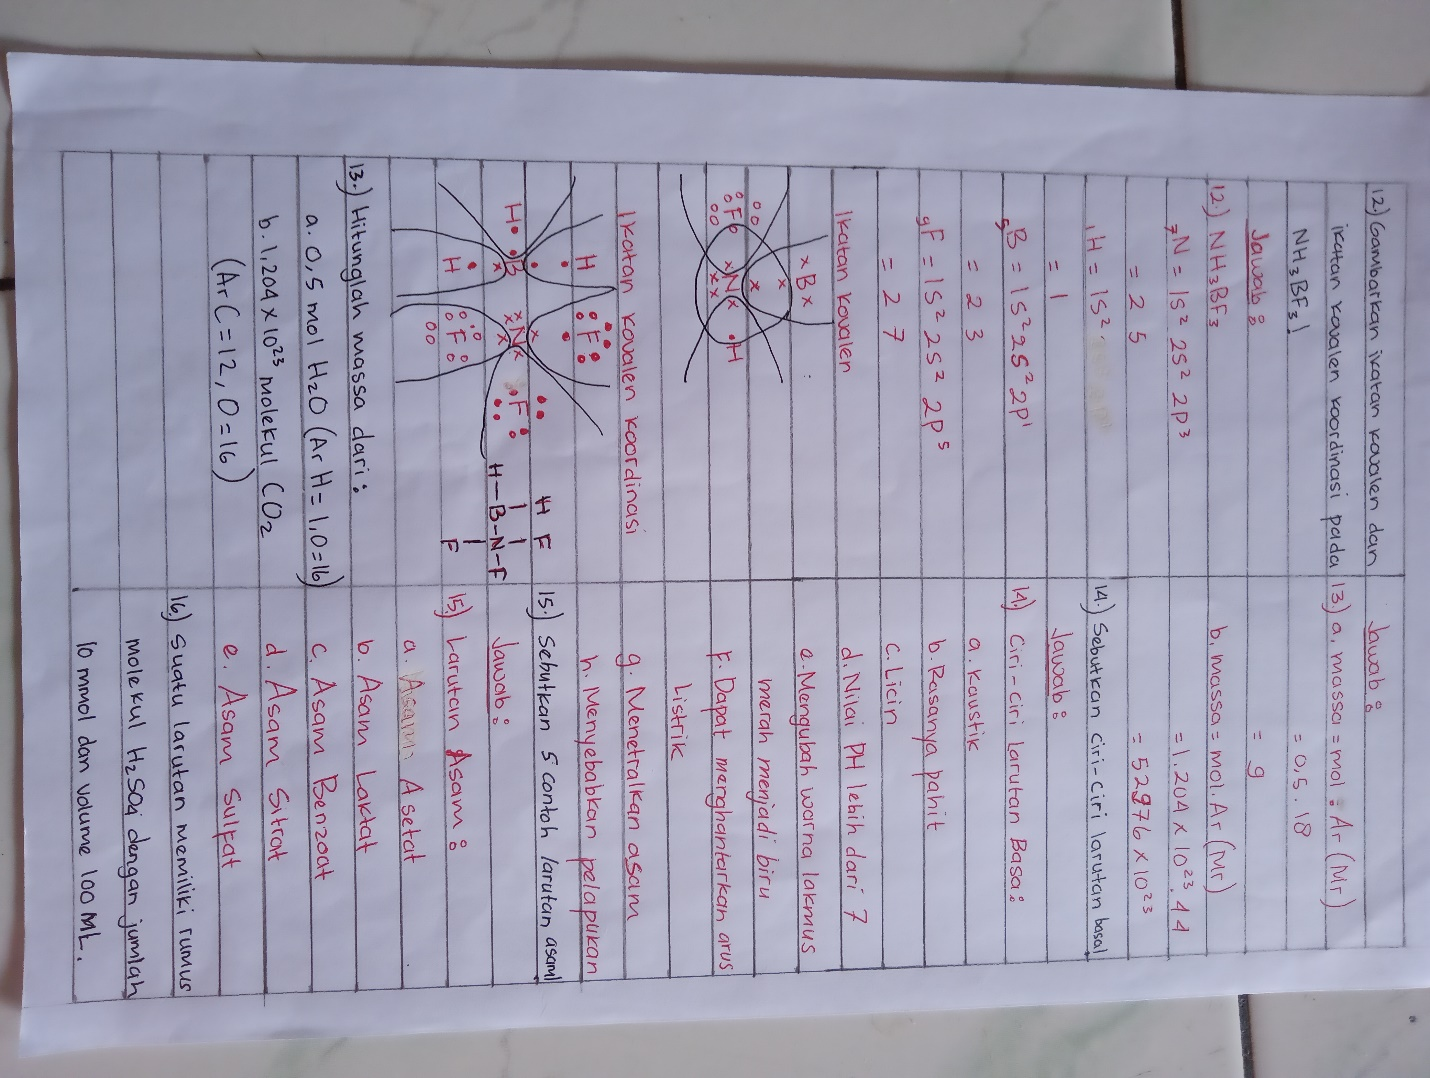 12.) Gambarkan ikatan kovalen dan
ikatan kovalen koordinasi pada
NH₃BF₃!
Jawab :
12.) NH₃BF₃
₇N = 1S² 2S² 2P³
= 2 5
₁H = 1S²
= 1
₅B = 1S² 2S² 2P¹
= 2 3
₉F = 1S² 2S² 2P⁵
= 2 7
Ikatan kovalen
B
F N H
Ikatan kovalen koordinasi
H F
H B N F
H F
H F
H-B-N-F
F
13.) Hitunglah massa dari :
a. 0,5 mol H₂O (Ar H = 1, O = 16)
b. 1,204 x 10²³ molekul CO₂
(Ar C = 12, O = 16)
Jawab :
13.) a. massa = mol . Ar (Mr)
= 0,5 . 18
= 9
b. massa = mol. Ar (Mr)
= 1.204 x 10²³. 44
= 52976 x 10²³
14.) Sebutkan ciri-ciri larutan basa!
Jawab :
14.) Ciri-ciri larutan Basa :
a. Kaustik
b. Rasanya pahit
c. Licin
d. Nilai PH lebih dari 7
e. Mengubah warna lakmus
merah menjadi biru
f. Dapat menghantarkan arus
Listrik
g. Menetralkan asam
h. Menyebabkan pelapukan
15.) Sebutkan 5 contoh larutan asam!
Jawab :
15.) Larutan Asam :
a. Asam Asetat
b. Asam Laktat
c. Asam Benzoat
d. Asam Sitrat
e. Asam Sulfat
16.) Suatu larutan memiliki rumus
molekul H₂SO₄ dengan jumlah
10 mmol dan volume 100 ML.